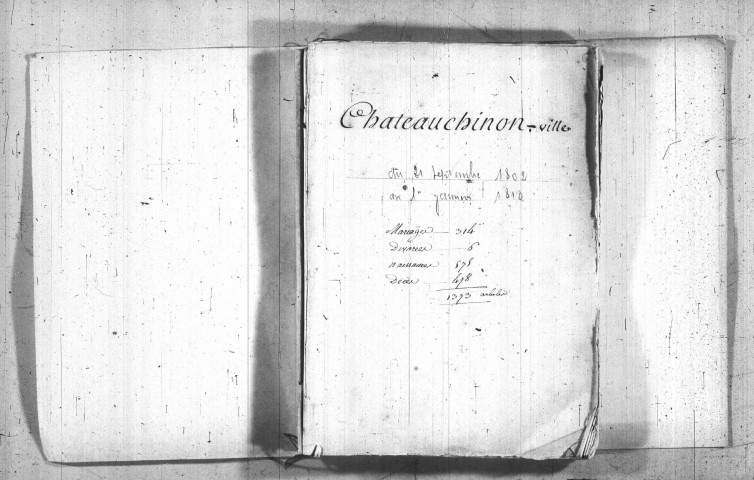 Chateauchinon-ville
du 21 septembre 1802
au 1er janvier 1813
Mariages — 314
Divorces — 6
naissances 575
Décès — 478
1373 articles